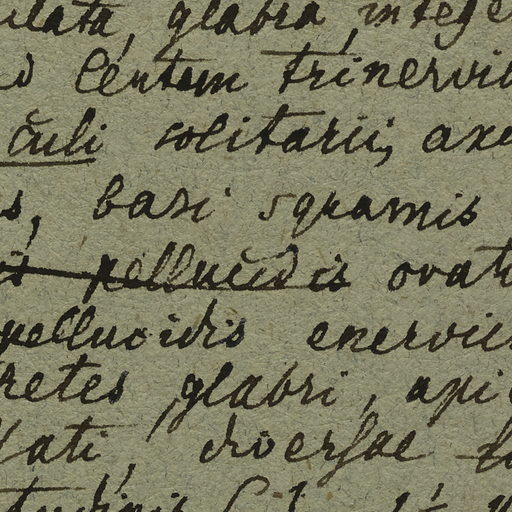 ulata, glabra, intege
ad lentem trinervi
culi solitarii, axe
s, basi squamis
is pellucidis ovat
pellucidis enervii
retes, glabri, api
lati, diversae